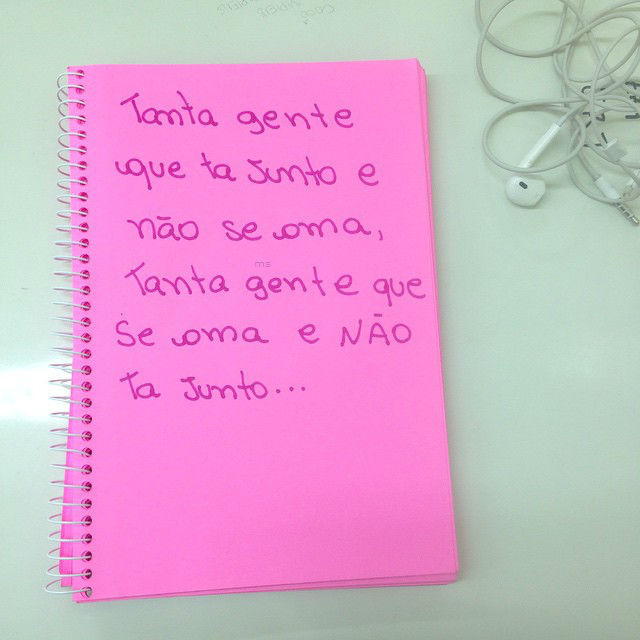 Tanta gente
que ta junto e
não se ama,
ms
Tanta gente que
se ama e NÃO
ta junto...